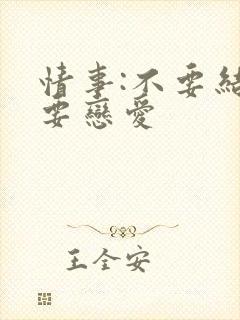 情事:不要結
要戀愛
王全安